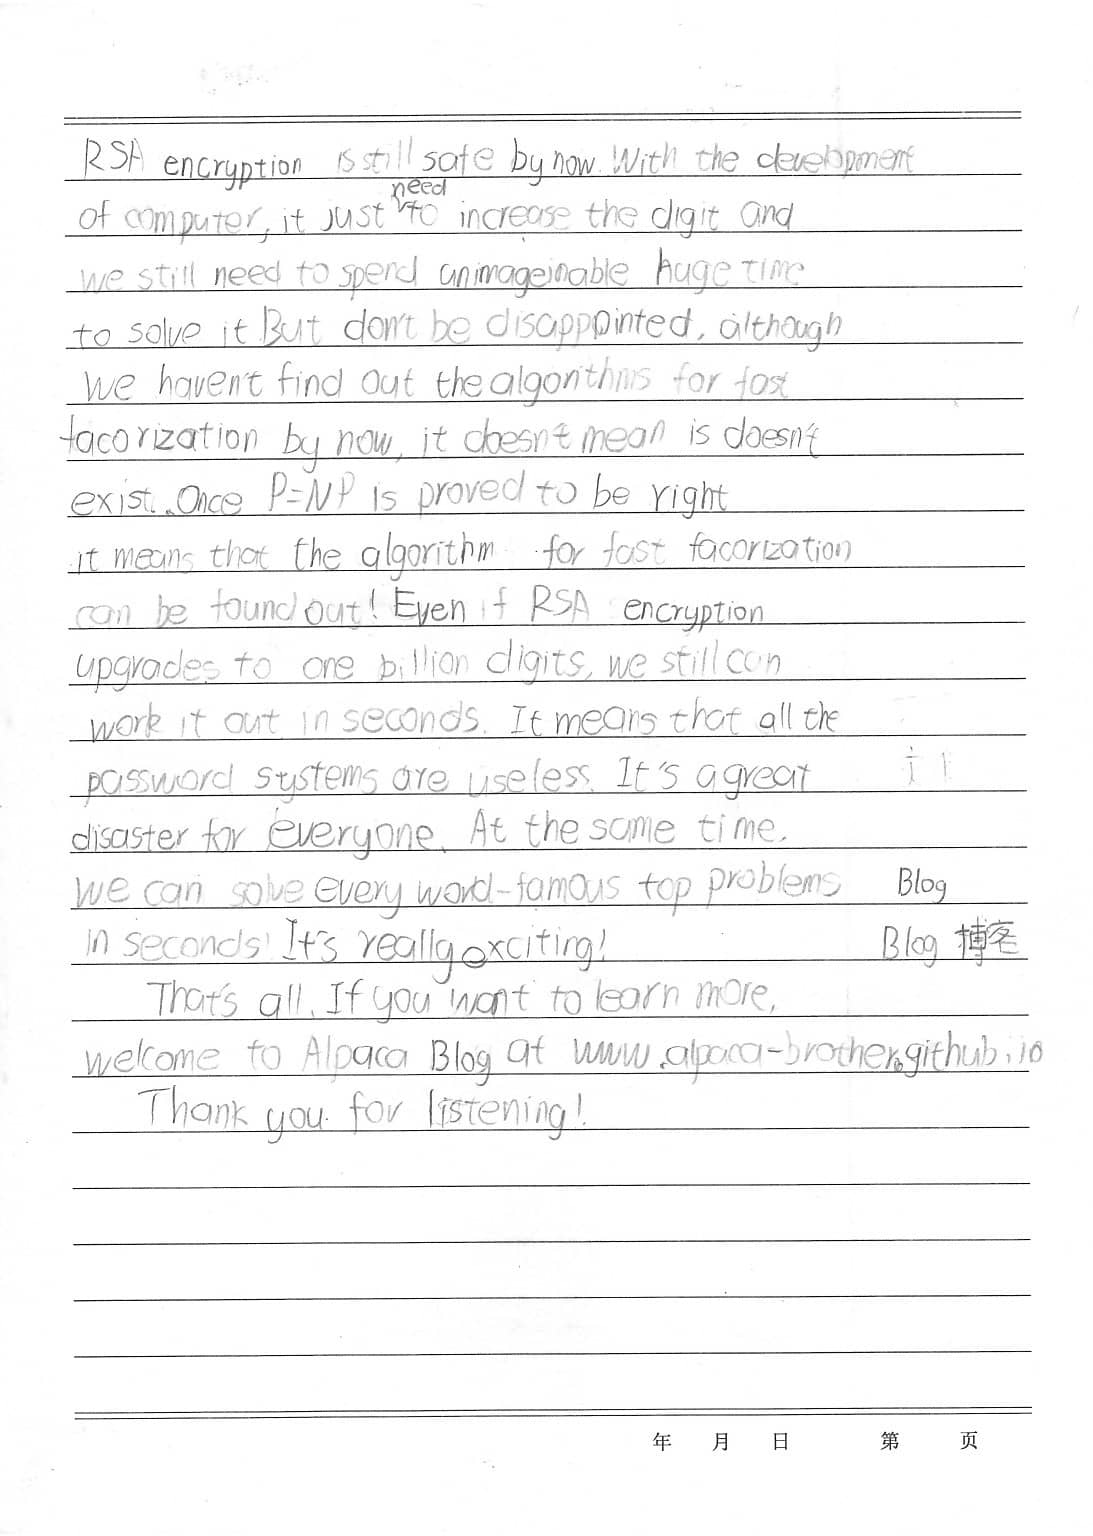 RSA encryption is still safe by now. With the development
of computer, it just need to increase the digit and
we still need to spend animageinable huge time
to solve it But don't be disappointed, although
we haven't find out the algorithms for fast
facorization by now, it doesn't mean is doesn't
exist. Once P=NP is proved to be right
it means that the algorithm for fast facorization
can be found out! Even if RSA encryption
upgrades to one billion digits, we still can
work it out in seconds. It means that all the
password systems are useless. It's a great
disaster for everyone. At the same time,
we can solve every word-famous top problems Blog
in seconds! It's really exciting! Blog 博客
That's all. If you want to learn more,
welcome to Alpaca Blog at www.alpaca-brother.github.io
Thank you for listening!
年 月 日 第 页